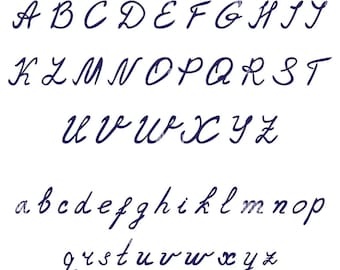 A B C D E F G H I J
K L M N O P Q R S T
U V W X Y Z
a b c d e f g h i k l m n o p
q r s t u v w x y z